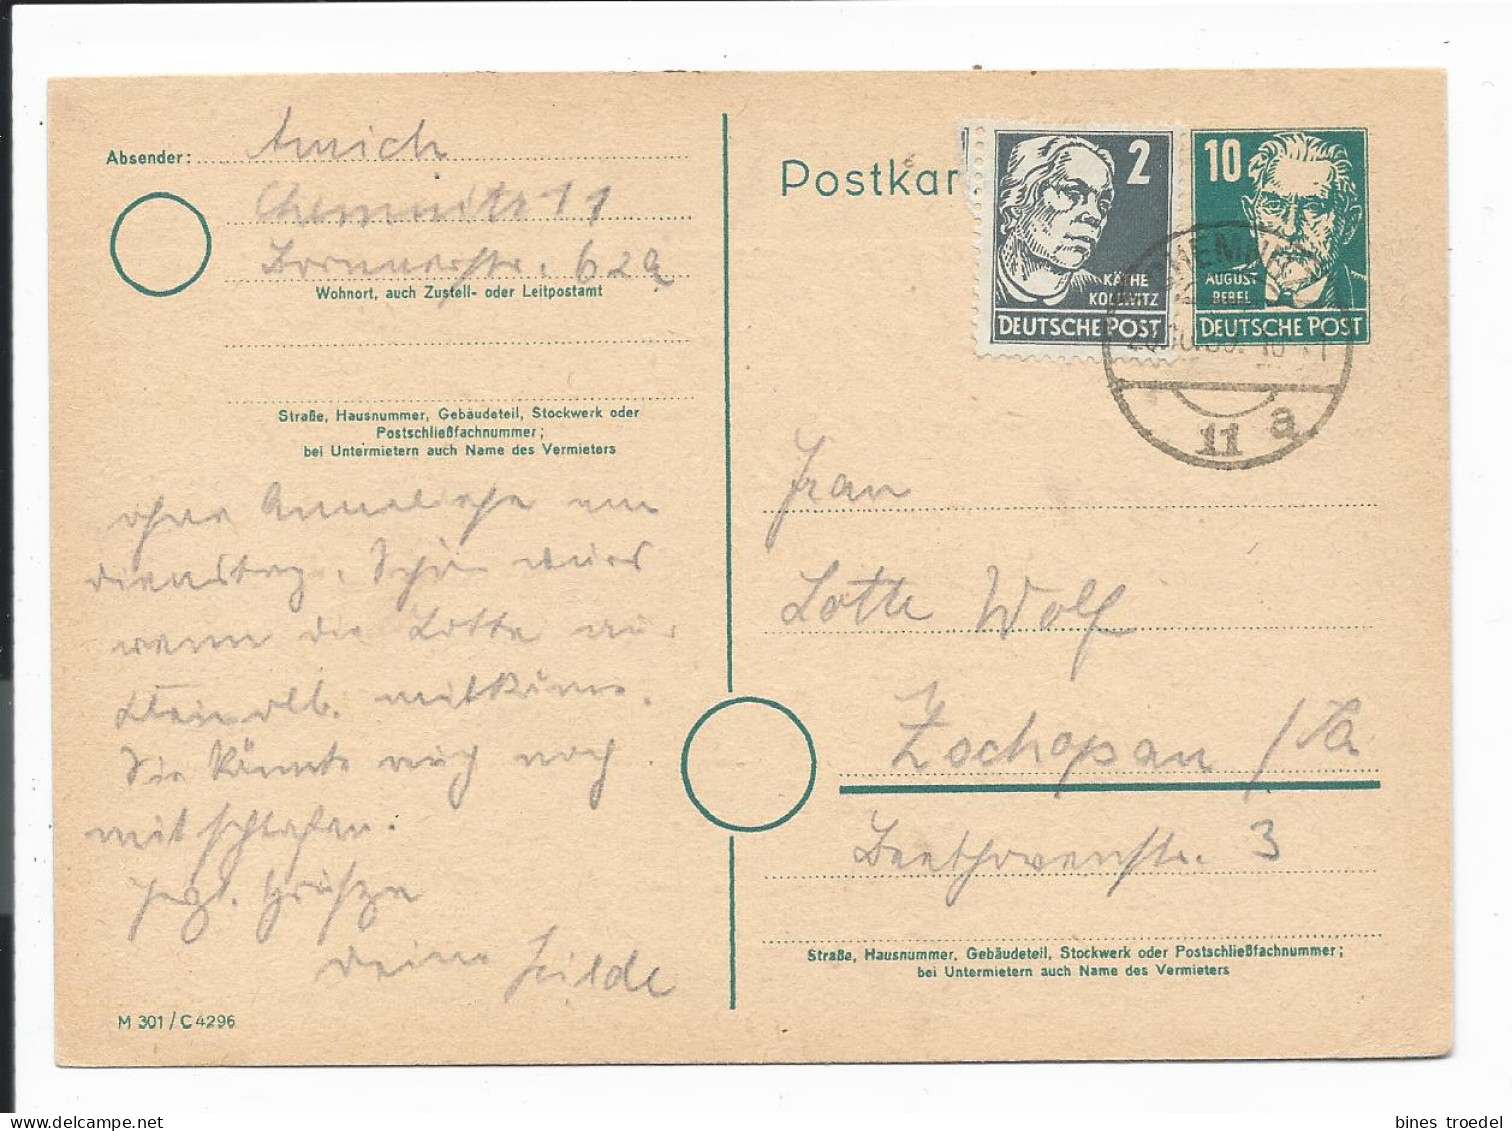 Absender: Amich
Chemnitz 11
Bornaerstr. 62a
Wohnort, auch Zustell- oder Leitpostamt
Straße, Hausnummer, Gebäudeteil, Stockwerk oder
Postschließfachnummer;
bei Untermietern auch Name des Vermieters
ohne Anneliese am
Dienstag. Schön wärs
wenn die Lotte aus
mitkäme.
Sie könnte auch noch
mit schlafen.
Hrzl. Grüsze
Deine Hilde
M 301/C 4296
Postkar
2
KÄTHE
KOLLWITZ
DEUTSCHE POST
10
AUGUST
BEBEL
DEUTSCHE POST
CHEMNITZ
11 a
Frau
Lotte Wolf
Zschopau /Sa
Beethovenstr. 3
Straße, Hausnummer, Gebäudeteil, Stockwerk oder Postschließfachnummer;
bei Untermietern auch Name des Vermieters
bines_troedel